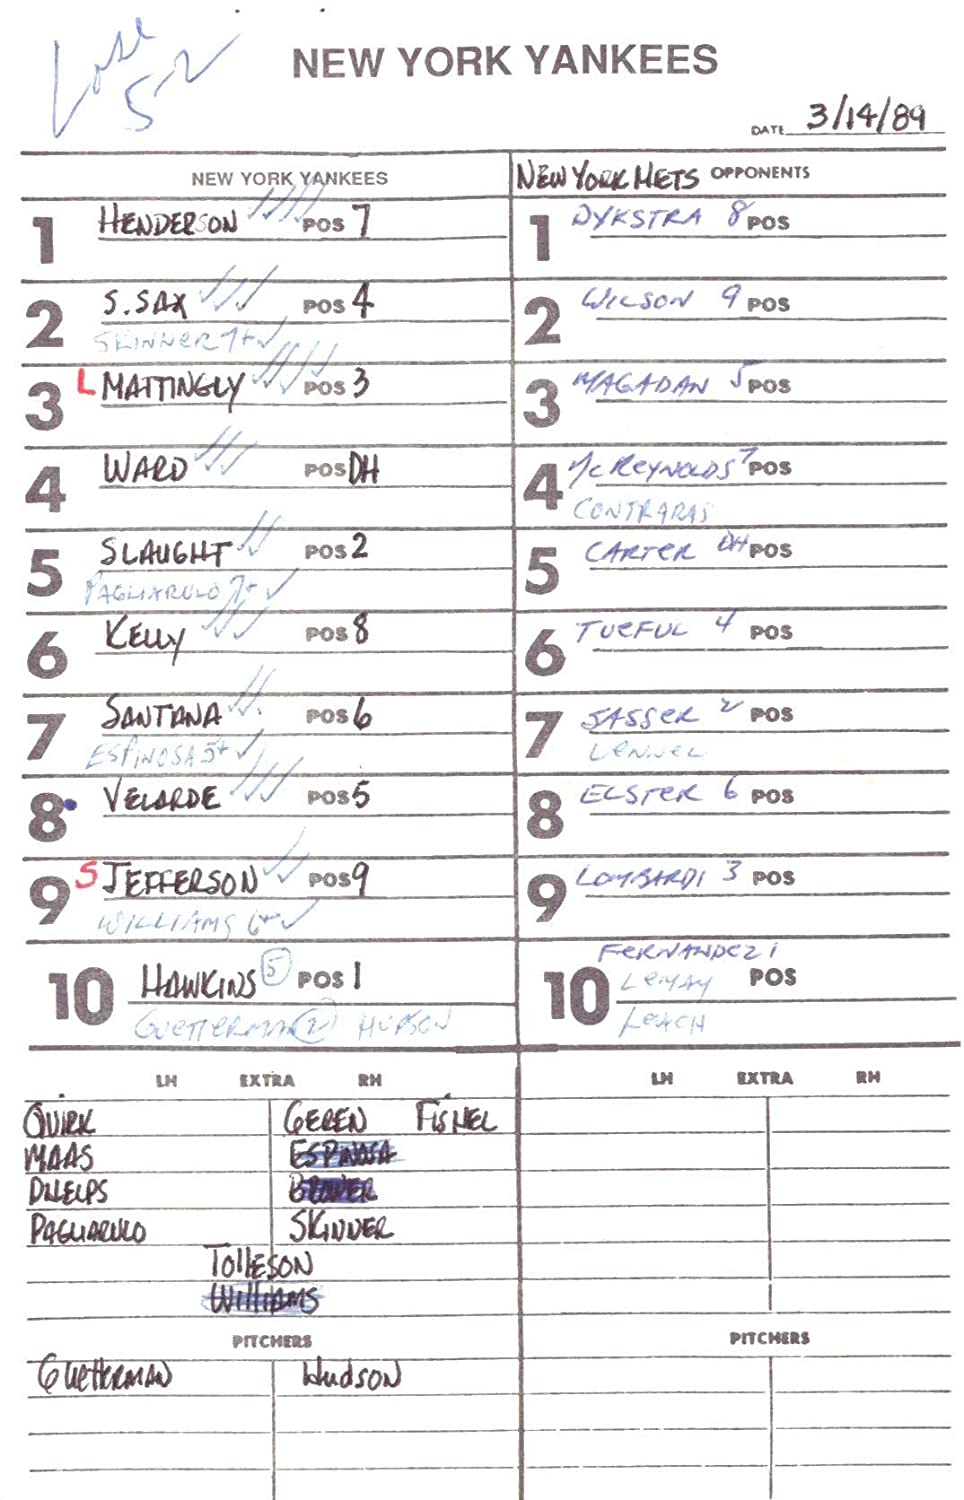 Lose
5-2
NEW YORK YANKEES
DATE 3/14/89
NEW YORK YANKEES
NEW YORK METS OPPONENTS
1 HENDERSON POS 7
1 DYKSTRA 8 POS
2 S. SAX POS 4
SKINNER 7+
2 WILSON 9 POS
3 L MATTINGLY POS 3
3 MAGADAN 5 POS
4 WARD POS DH
4 McREYNOLDS 7 POS
CONTRARAS
5 SLAUGHT POS 2
PAGLIARULO 7+
5 CARTER DH POS
6 KELLY POS 8
6 TUEFUL 4 POS
7 SANTANA POS 6
ESPINOSA 5+
7 SASSER 2 POS
8 VELARDE POS 5
8 ELSTER 6 POS
9 S JEFFERSON POS 9
WILLIAMS 6+
9 LOMBARDI 3 POS
10 HAWKINS 5 POS 1
GUETTERMAN 2 HUDSON
FERNANDEZ 1
10 POS
LEACH
LH EXTRA RH
LH EXTRA RH
QUIRK GEREN FISHEL
MAAS ESPINOSA
PHELPS BROWER
PAGLIARULO SKINNER
TOLLESON
WILLIAMS
PITCHERS
PITCHERS
GUETTERMAN HUDSON